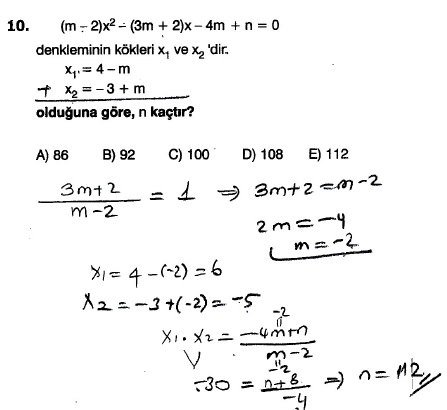 10. (m - 2)x² - (3m + 2)x - 4m + n = 0
denkleminin kökleri x₁ ve x₂ 'dir.
x₁ = 4 - m
+ x₂ = - 3 + m
olduğuna göre, n kaçtır?
A) 86 B) 92 C) 100 D) 108 E) 112
(3m+2)/(m-2) = 1 ⇒ 3m+2 = m-2
2m = -4
m = -2
x₁ = 4 -(-2) = 6
x₂ = -3 +(-2) = -5
-2
x₁ . x₂ = (-4m+n)/(m-2)
-2
-30 = (n+8)/(-4) ⇒ n = 112